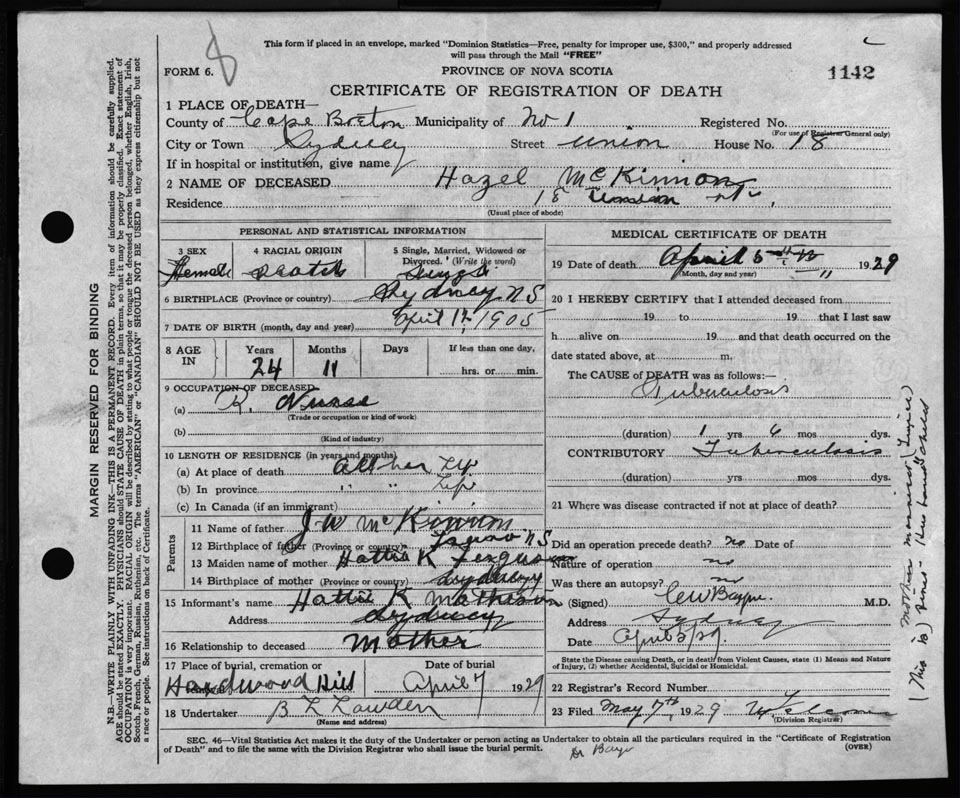 8
This form if placed in an envelope, marked "Dominion Statistics—Free, penalty for improper use, $300," and properly addressed
will pass through the Mail "FREE"
FORM 6.
PROVINCE OF NOVA SCOTIA
1142
CERTIFICATE OF REGISTRATION OF DEATH
1 PLACE OF DEATH—
County of Cape Breton Municipality of No 1 Registered No.
(For use of Registrar General only)
City or Town Sydney Street Union House No. 18
If in hospital or institution, give name
2 NAME OF DECEASED Hazel McKinnon
Residence 18 Union St.,
(Usual place of abode)
PERSONAL AND STATISTICAL INFORMATION
3 SEX 4 RACIAL ORIGIN 5 Single, Married, Widowed or
Divorced. (Write the word)
Female Scotch Single
6 BIRTHPLACE (Province or country) Sydney NS
7 DATE OF BIRTH (month, day and year) April 12, 1905
8 AGE IN Years Months Days If less than one day,
24 11 hrs. or min.
9 OCCUPATION OF DECEASED
(a) R. Nurse
(Trade or occupation or kind of work)
(b)
(Kind of industry)
10 LENGTH OF RESIDENCE (in years and months)
(a) At place of death all her life
(b) In province " " life
(c) In Canada (if an immigrant)
Parents
11 Name of father J W McKinnon
12 Birthplace of father (Province or country) NS
13 Maiden name of mother Hattie K Ferguson
14 Birthplace of mother (Province or country) Sydney
15 Informant's name Hattie K Matheson
Address Sydney
16 Relationship to deceased Mother
17 Place of burial, cremation or Date of burial
Hardwood Hill April 7 1929
18 Undertaker B L Lowden
(Name and address)
MEDICAL CERTIFICATE OF DEATH
19 Date of death April 5th 1929
(Month, day and year)
20 I HEREBY CERTIFY that I attended deceased from
19 to 19 that I last saw
h alive on 19 and that death occurred on the
date stated above, at m.
The CAUSE of DEATH was as follows:
Tuberculosis
(duration) 1 yrs 6 mos dys.
CONTRIBUTORY Tuberculosis
(duration) yrs mos dys.
21 Where was disease contracted if not at place of death?
Did an operation precede death? no Date of
Nature of operation no
Was there an autopsy? no
(Signed) M.D.
Address Sydney
Date April 5/29
State the Disease causing Death, or in death from Violent Causes, state (1) Means and Nature
of Injury, (2) whether Accidental, Suicidal or Homicidal.
22 Registrar's Record Number
23 Filed May 7th, 1929
(Division Registrar)
SEC. 46—Vital Statistics Act makes it the duty of the Undertaker or person acting as Undertaker to obtain all the particulars required in the "Certificate of Registration
of Death" and to file the same with the Division Registrar who shall issue the burial permit.
(OVER)
MARGIN RESERVED FOR BINDING
N.B.—WRITE PLAINLY WITH UNFADING INK—THIS IS A PERMANENT RECORD. Every item of information should be carefully supplied.
AGE should be stated EXACTLY. PHYSICIANS should STATE CAUSE OF DEATH in plain terms, so that it may be properly classified. Exact statement of
OCCUPATION is very important. RACIAL ORIGIN will be described by stating to what people or tongue the deceased person belonged, whether English, Irish,
Scotch, French, German, Russian, Ruthenian, etc. The terms "AMERICAN" or "CANADIAN" SHOULD NOT BE USED as they express citizenship but not
a race or people. See instructions on back of Certificate.